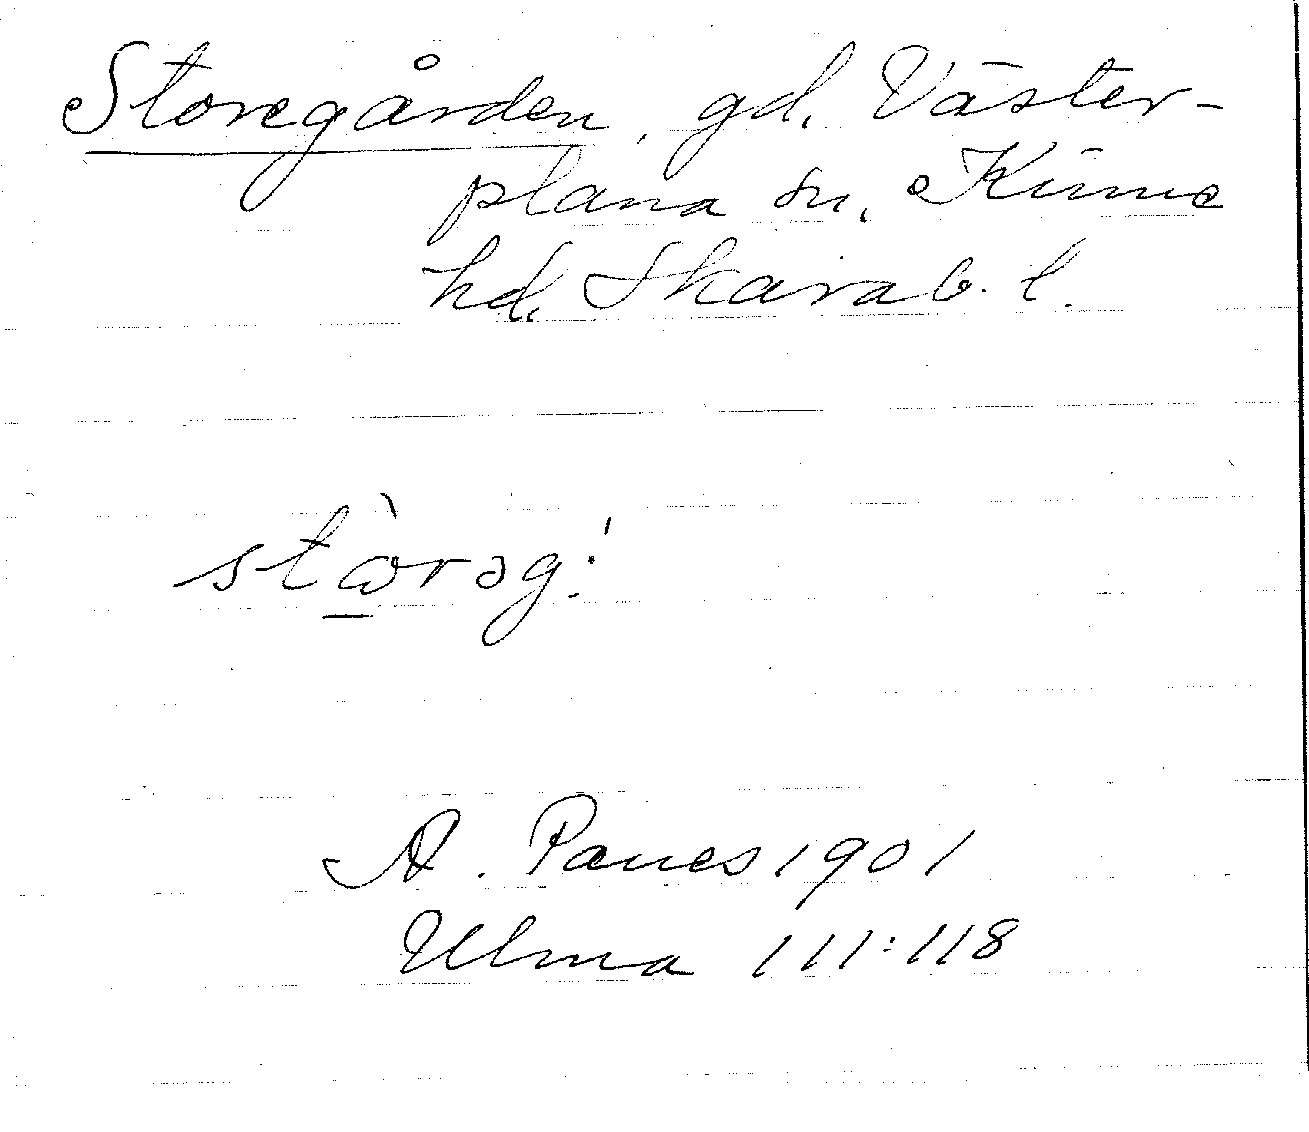 Storegården, gd, Väster-
plana sn, Kinne
hd, Skarab. l.
stὼ̲rəg:'
A. Panes 1901
Ulma 111:118